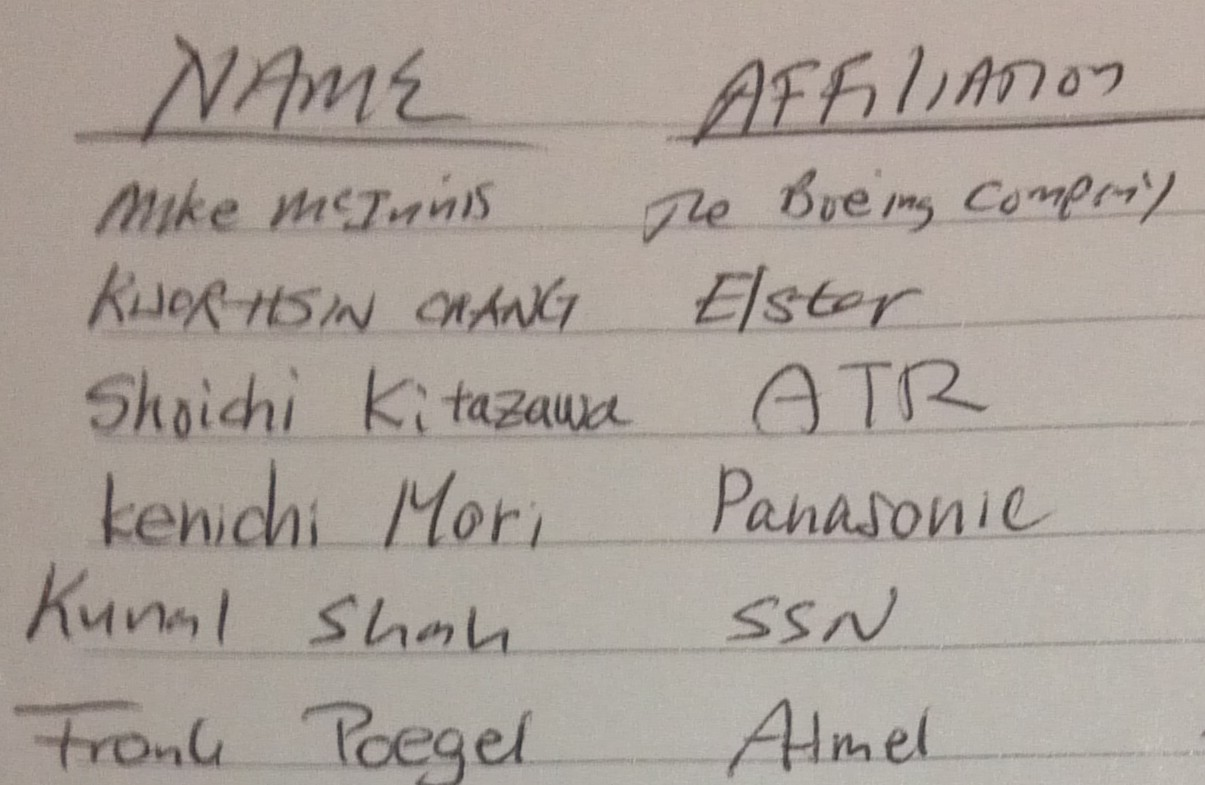 NAME AFFILIATION
Mike McInnis The Boeing Company
KUOR-HSIN CHANG Elster
Shoichi Kitazawa ATR
Kenichi Mori Panasonic
Kunal Shah SSN
Frank Poegel Atmel